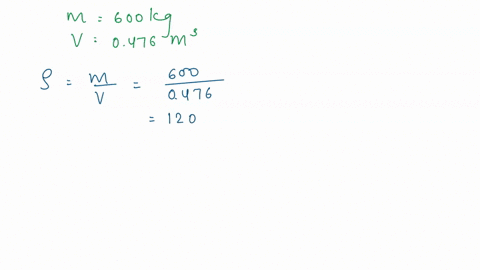 m = 600 kg
V = 0.476 m³
ρ = m/V = 600/0.476
= 120